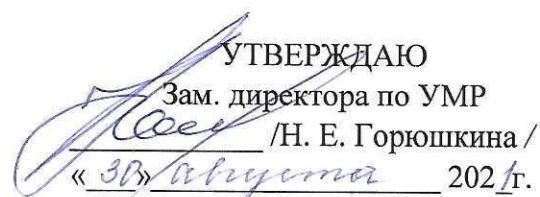 УТВЕРЖДАЮ
Зам. директора по УМР
/Н. Е. Горюшкина /
«30» августа 2021г.